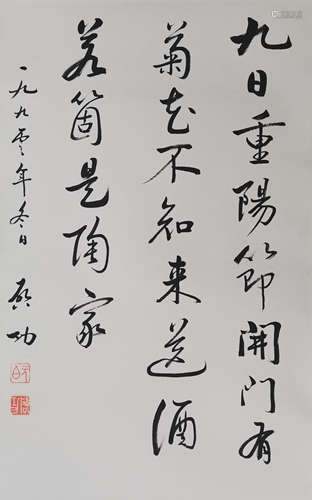 九日重陽節開門有
菊花不知来送酒
若箇是陶家
一九九零年冬日 启功